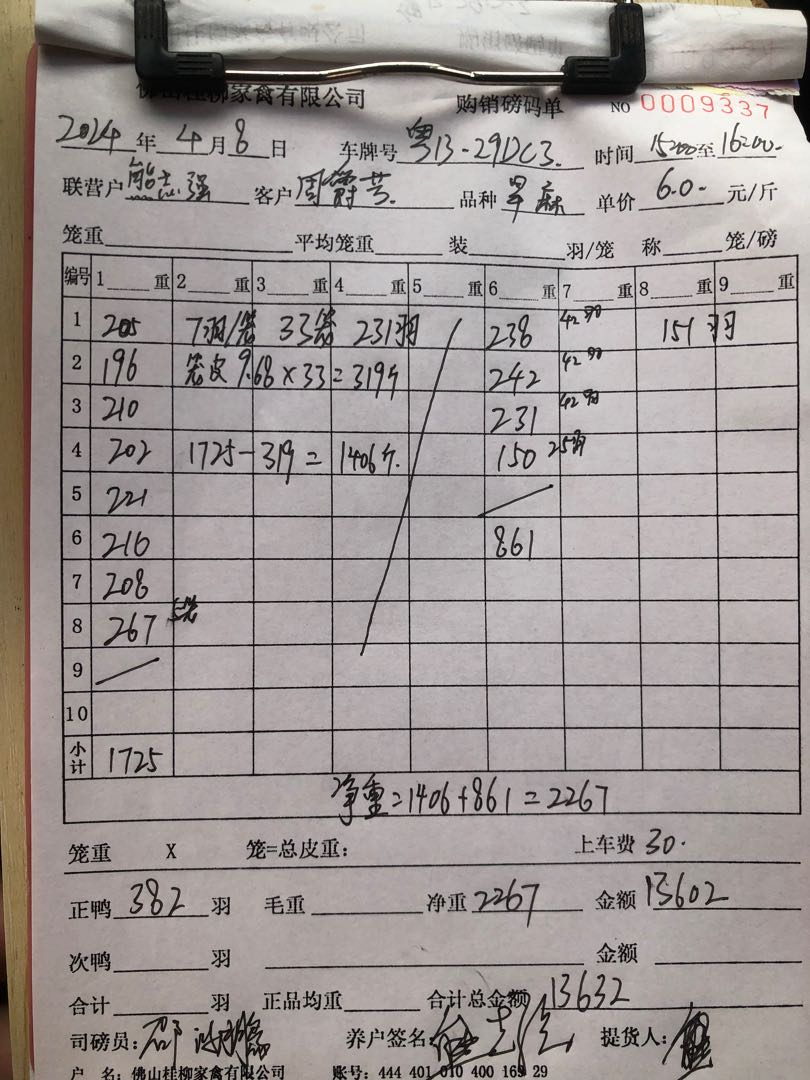 佛山桂柳家禽有限公司 购销磅码单 NO 0009337
2024 年 4 月 8 日 车牌号 粤B-29DC3 时间 15:00 至 16:00
联营户 熊志强 客户 周 品种 麻 单价 6.0 元/斤
笼重 平均笼重 装 羽/笼 称 笼/磅
编号 1 重 2 重 3 重 4 重 5 重 6 重 7 重 8 重 9 重
1 205 7羽/笼 33笼 231羽 238 42羽 151羽
2 196 笼皮 9.68×33=319斤 242 42羽
3 210 231 42羽
4 202 1725-319=1406斤. 150 25羽
5 221
6 216 861
7 208
8 267 5笼
9
10
小计 1725
净重=1406+861=2267
笼重 X 笼=总皮重: 上车费 30.
正鸭 382 羽 毛重 净重 2267 金额 13602
次鸭 羽 金额
合计 羽 正品均重 合计总金额 13632
司磅员: 邵 养户签名 熊志强 提货人:
户 名: 佛山桂柳家禽有限公司 账号: 444 401 010 400 169 29